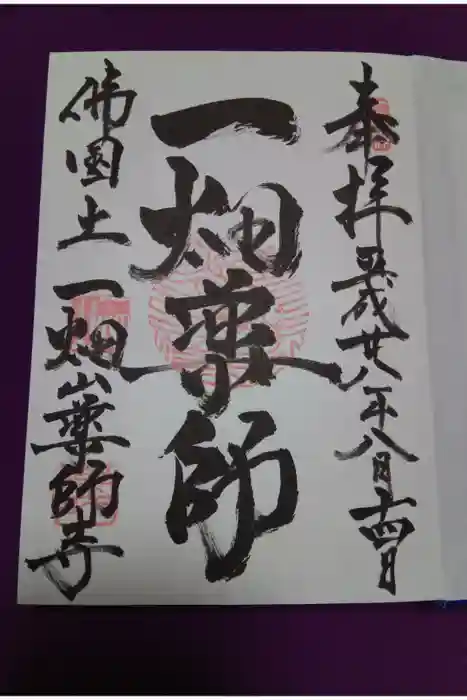 奉拝 平成廿八年八月十四日
一畑薬師
佛国土 一畑山薬師寺